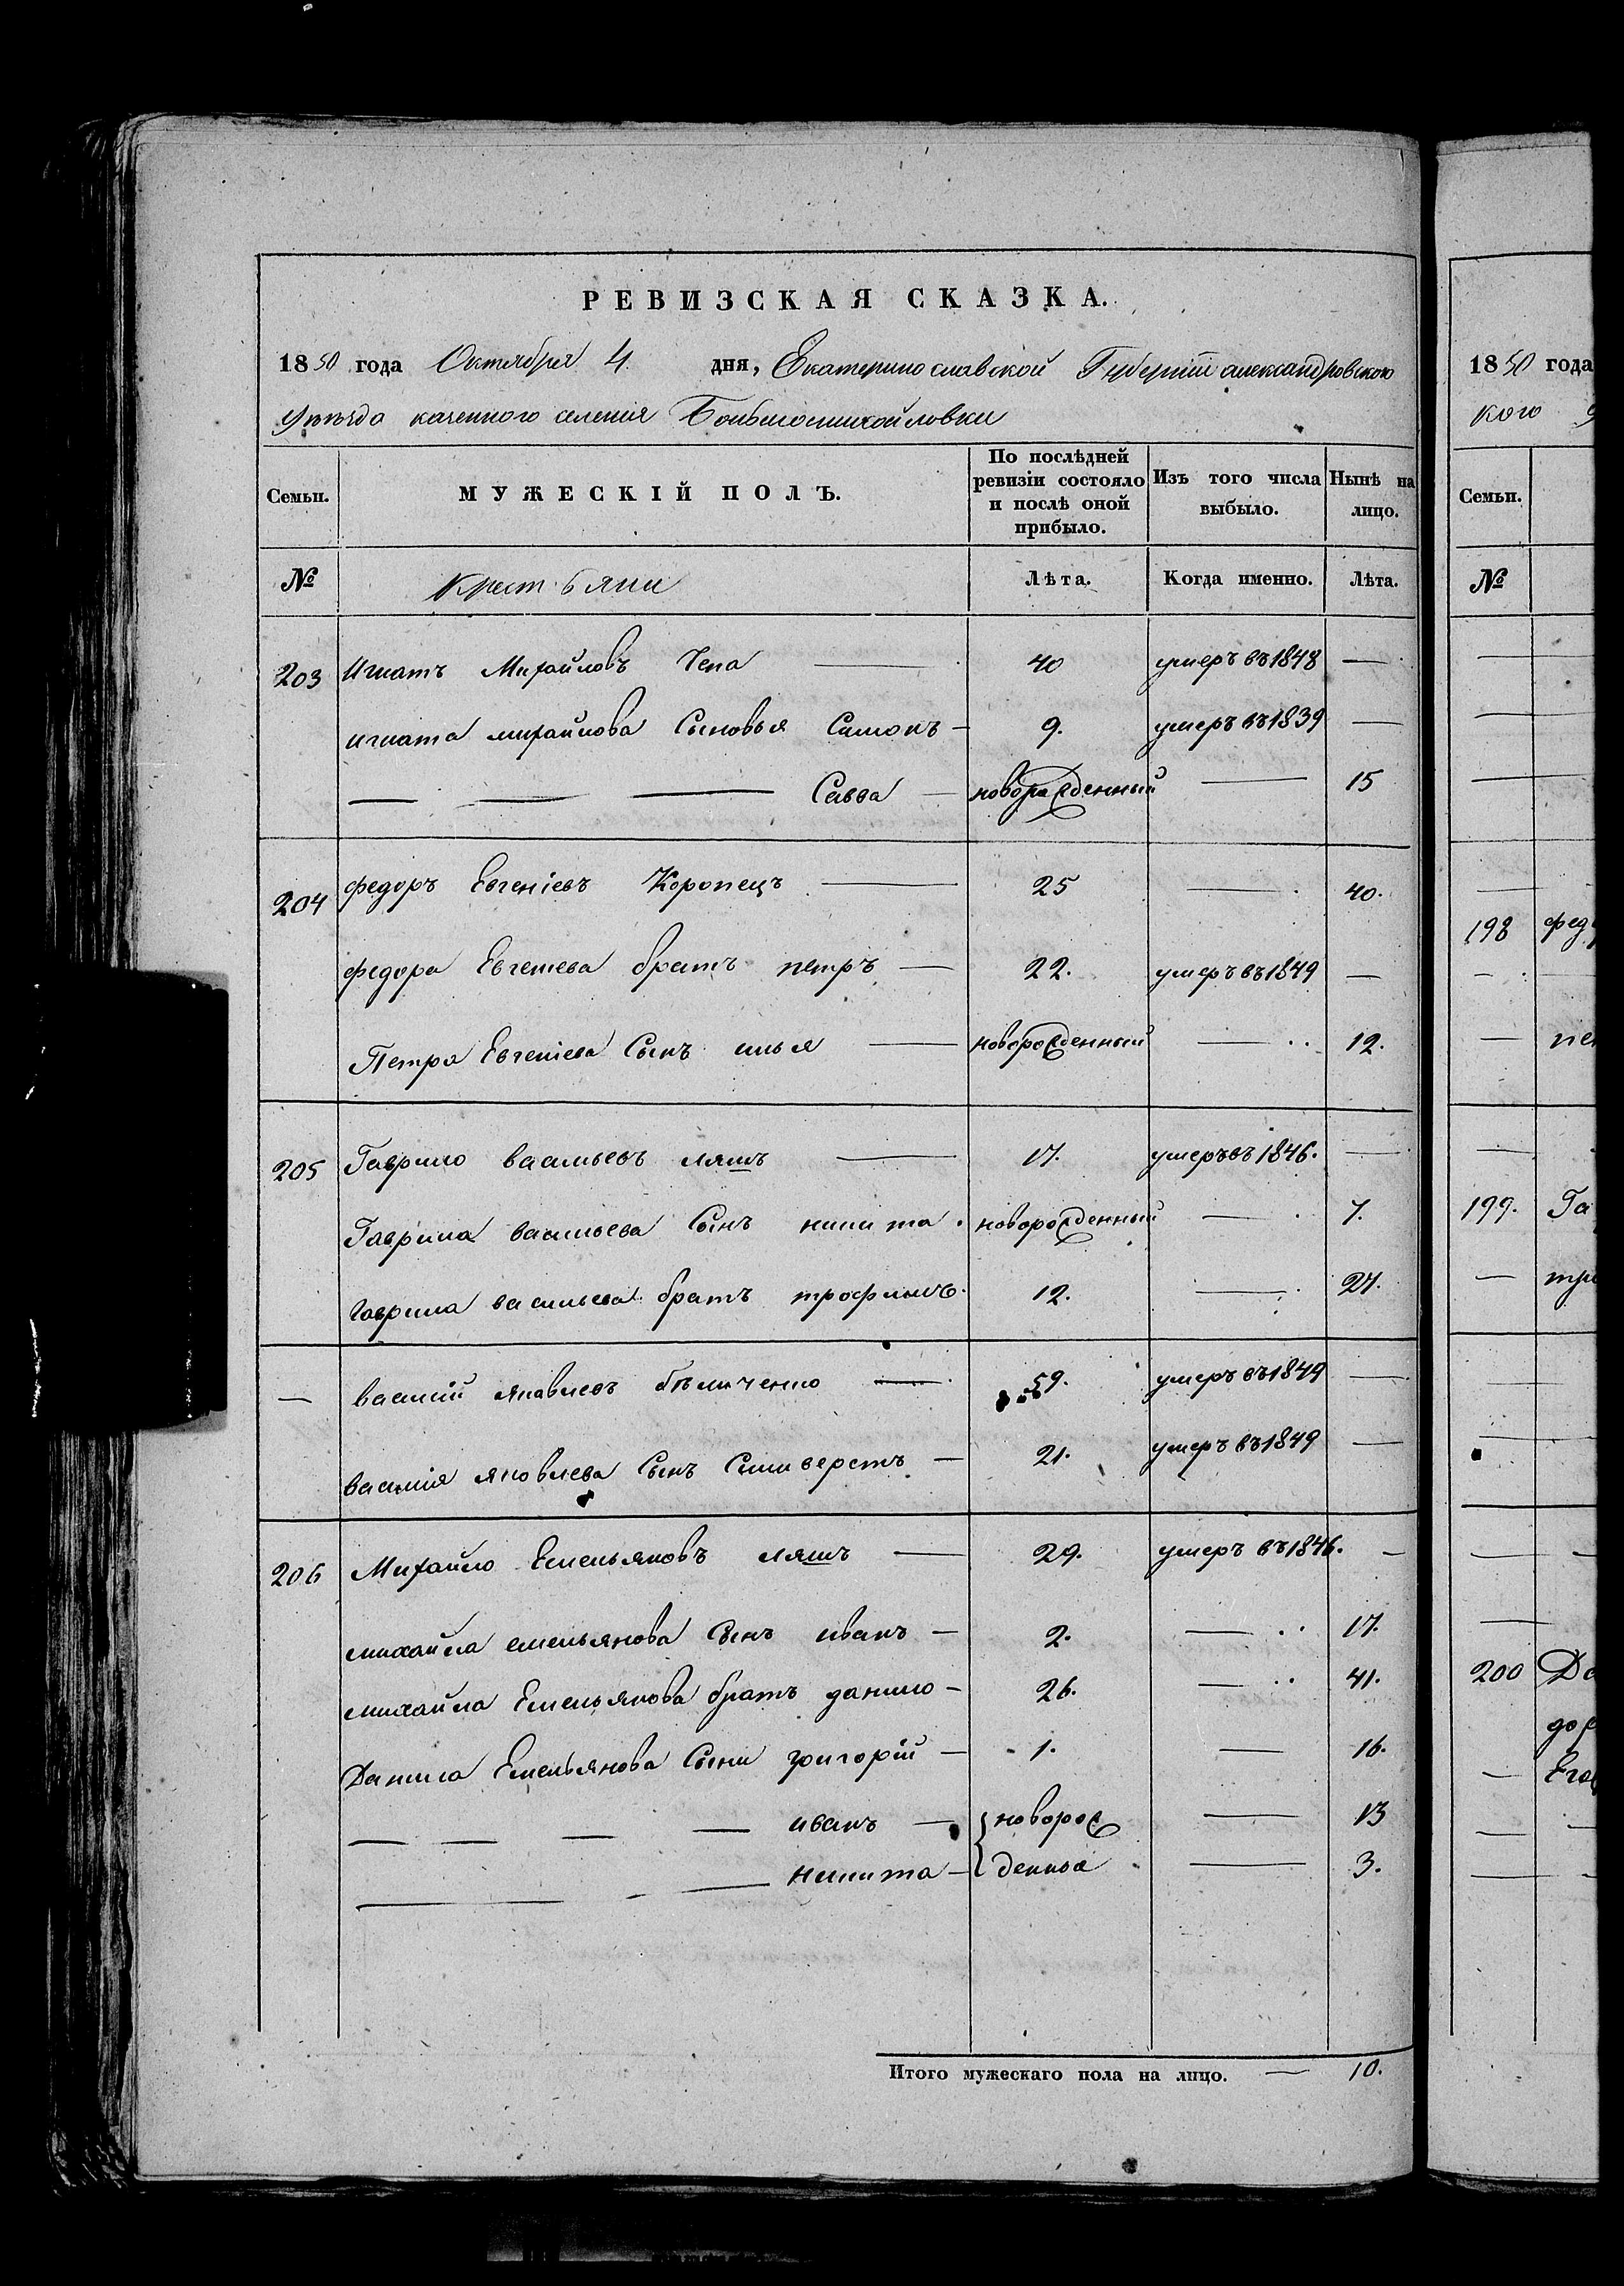 РЕВИЗСКАЯ СКАЗКА.
1850 года Октября 4 дня, Екатеринославской Губерніи александровского
уѣзда казенного селенія Большомихайловки
Семьи. МУЖЕСКІЙ ПОЛЪ. По послѣдней ревизіи состояло и послѣ оной прибыло. Изъ того числа выбыло. Нынѣ на лицо.
№ Крестьяни Лѣта. Когда именно. Лѣта.
203 Игнатъ Михайловъ Чепа — 40 умеръ въ 1848 —
игната михайлова Сыновья Самонъ — 9. умеръ въ 1839 —
— — — Савва — новорожденный — 15
204 федоръ Евгеніевъ Коропецъ — 25 — 40.
федора Евгеніева братъ петръ — 22. умеръ въ 1849 —
Петра Евгеніева Сынъ илья — новорожденный — 12.
205 Гаврило васильевъ ляшъ — 17. умеръ въ 1846. —
Гаврила васильева Сынъ никита. новорожденный — 7.
гаврила васильева братъ трофимъ. 12. — 27.
— василій яковлевъ бѣличенко — 59. умеръ въ 1849 —
василія яковлева Сынъ Силиверстъ — 21. умеръ въ 1849 —
206 Михайло Емельяновъ ляшъ — 29. умеръ въ 1846. —
михайла емельянова Сынъ иванъ — 2. — 17.
михайла Емельянова братъ данило — 26. — 41.
Данила Емельянова Сыни григорій — 1. — 16.
— — — — иванъ — новорож — 13
— — — никита — денныа — 3.
Итого мужескаго пола на лицо. — 10.
1850 года
кого
Семьи.
№
198 фед
199. Га
200